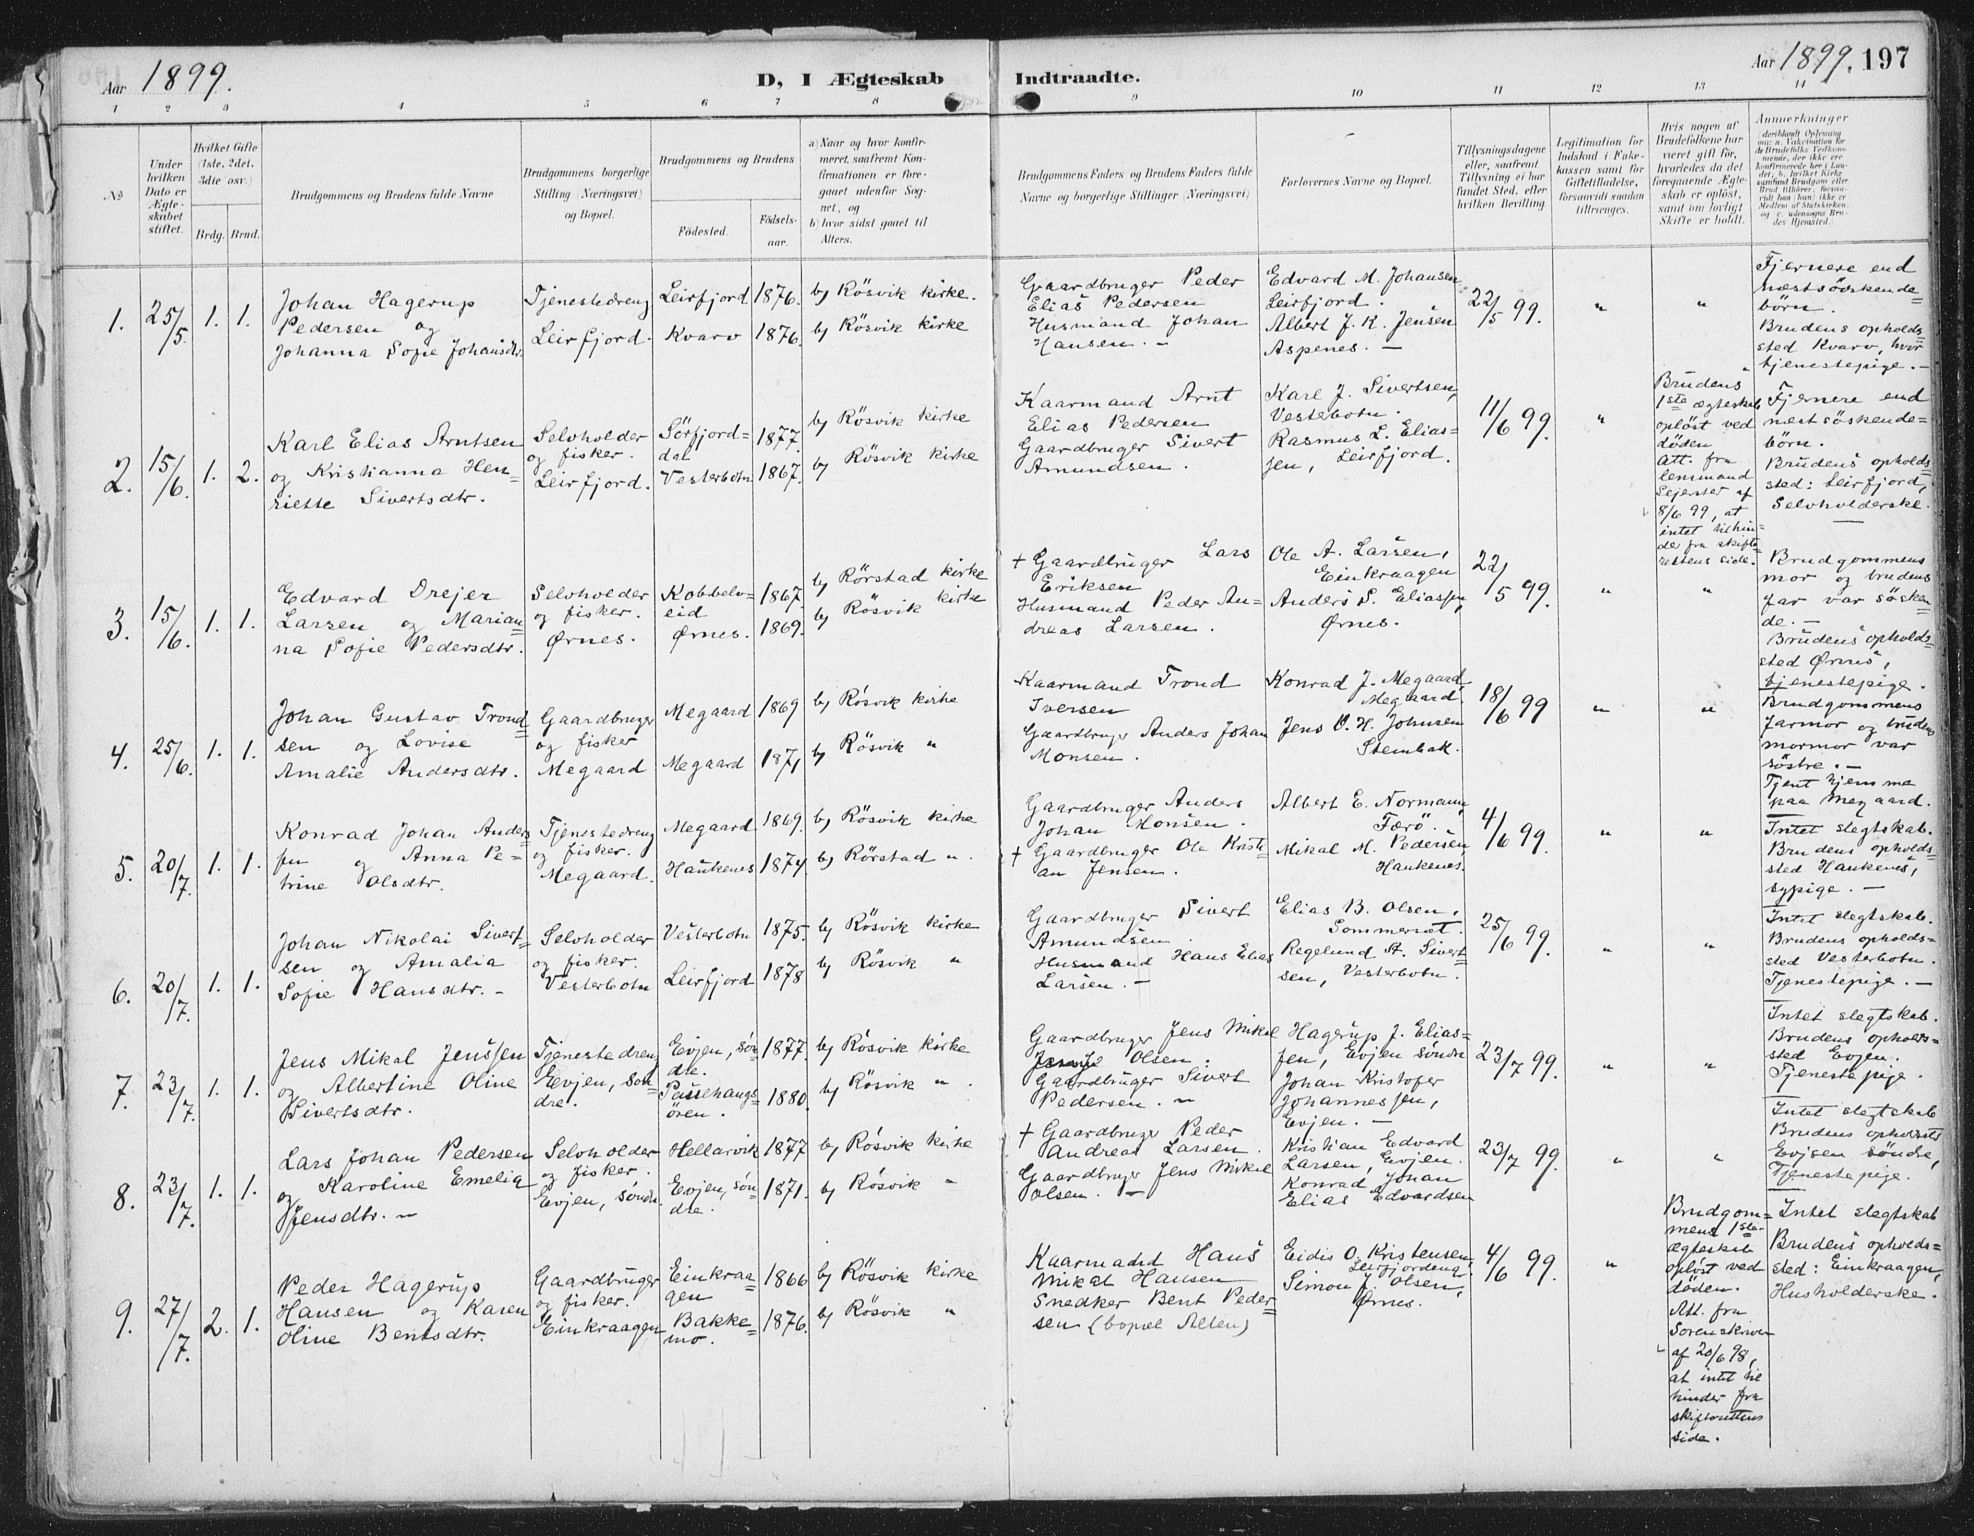 Aar 1899.
D, I Ægteskab Indtraadte.
Aar 1899. 197
1 2 3 4 5 6 7 8 9 10 11 12 13 14
№
Under hvilken Dato er Ægte-skabet stiftet.
Hvilket Gifte (1ste, 2det, 3die osv.)
Brdg. Brud.
Brudgommens og Brudens fulde Navne
Brudgommens borgerlige Stilling (Næringsvei) og Bopæl.
Brudgommens og Brudens
Fødested.
Fødsels-aar.
a) Naar og hvor konfir-meret, saafremt Kon-firmationen er fore-gaaet udenfor Sog-net, og
b) hvor sidst gaaet til Alters.
Brudgommens Faders og Brudens Faders fulde Navne og borgerlige Stillinger (Næringsvei)
Forlovernes Navne og Bopæl.
Tillysningsdagene eller, saafremt Tillysning ei har fundet Sted, efter hvilken Bevilling
Legitimation for Indskud i Enke-kassen samt for Giftetilladelse, forsaavidt saadan tiltrænges.
Hvis nogen af Brudefolkene har været gift før, hvorledes da det foregaaende Ægte-skab er opløst, samt om lovligt Skifte er holdt.
Anmerkninger
1. 25/5. 1. 1.
Johan Hagerup
Pedersen og
Johanna Sofie Johansdtr.
Tjenestedreng
Leirfjord.
Leirfjord 1876. b) Rösvik kirke.
Kvarv 1876. b) Rösvik kirke
Gaardbruger Peder
Elias Pedersen
Husmand Johan
Hansen. –
Edvard M. Johansen,
Leirfjord.
Albert J. K. Jensen
Aspenes. –
22/5 99. " "
Fjernere end
næstsöskende=
börn.
Brudens opholds=
sted Kvarv, hvor
tjenestepige. –
2. 15/6. 1. 2.
Karl Elias Arntsen
og Kristianna Hen=
riette Sivertsdtr.
Selvholder
og fisker.
Leirfjord.
Sörfjord=
dal 1877. b) Rösvik kirke
Vesterbotn 1867. b) Rösvik kirke
Kaarmand Arnt
Elias Pedersen
Gaardbruger Sivert
Amundsen.
Karl J. Sivertsen,
Vesterbotn.
Rasmus L. Elias=
sen, Leirfjord.
11/6 99. "
Brudens
1ste ægteskab
oplöst ved
döden
Att. fra
lensmand
Sejersted af
8/6 99, at
intet tilhin=
de fra skifte
rettens side.
Fjernere end
næstsöskende=
börn.
Brudens opholds=
sted: Leirfjord,
Selvholderske.
3. 15/6. 1. 1.
Edvard Drejer
Larsen og Marian=
na Sofie Pedersdtr.
Selvholder
og fisker.
Ørnes.
Kobbelv=
eid 1867. b) Rörstad kirke
Ørnes. 1869. b) Rösvik kirke
+ Gaardbruger Lars
Eriksen
Husmand Peder An=
dreas Larsen.
Ole A. Larsen,
Einkraagen
Anders S. Eliassen,
Ørnes.
22/5 99. " "
Brudgommens
mor og brudens
far var sösken
de. –
Brudens opholds=
sted Ørnes,
tjenestepige.
4. 25/6. 1. 1.
Johan Gustav Trond=
sen og Lovise
Amalie Andersdtr.
Gaardbruger
og fisker
Megaard
Megaard 1869 b) Rösvik kirke
Megaard 1871 b) Rösvik "
Kaarmand Trond
Iversen
Gaardbruger Anders Johan
Monsen.
Konrad J. Megaard
Megaard.
Jens O. H. Johnsen
Stenbak.
18/6 99 " "
Brudgommens
farmor og brudens
mormor var
söstre. –
Tjent hjemme
paa Megaard.
5. 20/7. 1. 1.
Konrad Johan Anders=
sen og Anna Pe=
trine Olsdtr.
Tjenestedreng
og fisker.
Megaard.
Megaard 1869. b) Rösvik kirke
Haukenes 1874. b) Rörstad ".
Gaardbruger Anders
Johan Monsen.
+ Gaardbruger Ole Kristi=
an Jensen.
Albert E. Normann,
Færö.
Mikal M. Pedersen,
Haukenes.
4/6 99. " "
Intet slegtskab.
Brudens opholds=
sted Haukenes,
sypige. –
6. 20/7. 1. 1.
Johan Nikolai Sivert=
sen og Amalia
Sofie Hansdtr. –
Selvholder
og fisker.
Vesterbotn
Vesterbotn 1875. b) Rösvik kirke
Leirfjord 1878 b) Rösvik "
Gaardbruger Sivert
Amundsen.
Husmand Hans Elias
Larsen. –
Elias B. Olsen,
Sommerset.
Regelund A. Sivert=
sen, Vesterbotn.
25/6 99. " "
Intet slegtskab.
Brudens opholds=
sted Vesterbotn.
Tjenestepige. –
7. 23/7. 1. 1.
Jens Mikal Jenssen
og Albertine Oline
Sivertsdtr.
Tjenestedreng
Evjen, sön=
dre.
Evjen, sön=
dre. 1877. b) Rösvik kirke
1880. b) Rösvik ".
Gaardbruger Jens Mikal
Olsen.
Gaardbruger Sivert
Pedersen. –
Hagerup J. Elias=
sen, Evjen söndre
Johan Kristofer
Johannessen,
Evjen. –
23/7 99. " "
Intet slegtskab.
Brudens opholds=
sted Evjen.
Tjenestepige.
8. 23/7. 1. 1.
Lars Johan Pedersen
og Karoline Emelia
Jensdtr. –
Selvholder
og fisker.
Evjen, söndre.
Hellarvik 1877 b) Rösvik kirke
Evjen, sön=
dre. 1871. b) Rösvik "
+ Gaardbruger Peder
Andreas Larsen.
Gaardbruger Jens Mikal
Olsen. –
Kristian Edvard
Larsen, Evjen.
Konrad Johan
Elias Edvardsen
23/7 99. " "
Intet slegtskab
Brudens opholdssted
Evjen söndre,
Tjenestepige.
9. 27/7. 2. 1.
Peder Hagerup
Hansen og Karen
Oline Bentsdtr.
Gaardbruger
og fisker.
Einkraagen
Einkraa=
gen 1866 b) Rösvik kirke
Bakke=
mo. 1876. b) Rösvik "
Kaarmand Hans
Mikal Hansen
Snedker Bent Peder=
sen (bopæl Alten)
Eidis O. Kristensen,
Leirfjorden
Simon J. Olsen,
Ørnes.
4/6 99. "
Brudgom=
mens 1ste
ægteskab
oplöst ved
döden.
Att. fra
Sorenskriver
af 20/6 98,
at intet til
hinder fra
skifterettens
side.
Intet slegtskab
Brudens opholds=
sted: Einkraagen,
Husholderske.